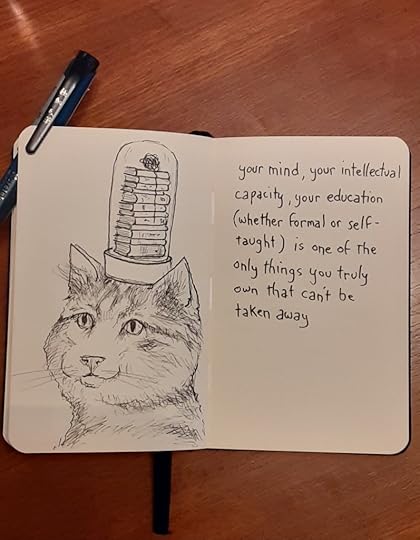 your mind, your intellectual
capacity, your education
(whether formal or self-
taught) is one of the
only things you truly
own that can't be
taken away